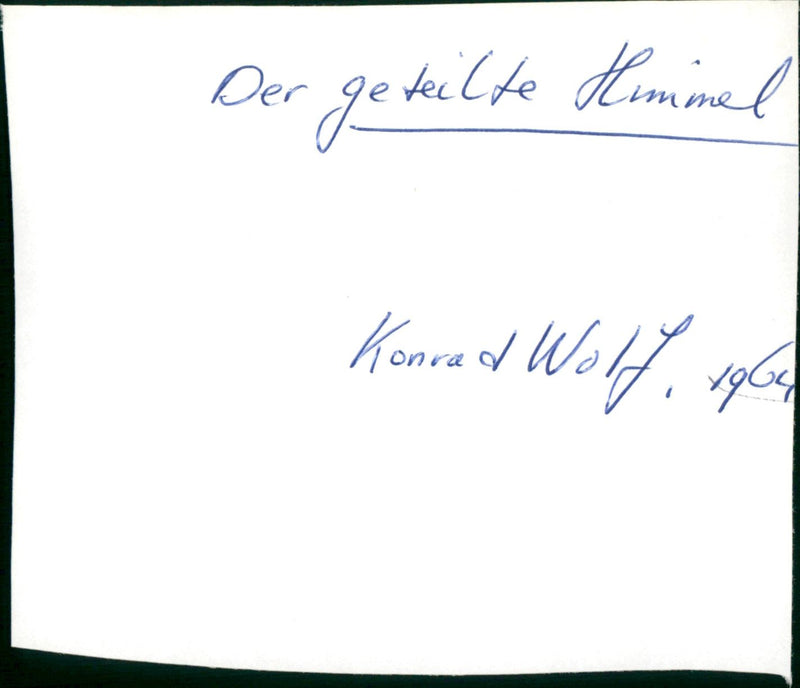 Der geteilte Himmel
Konrad Wolf, 1964